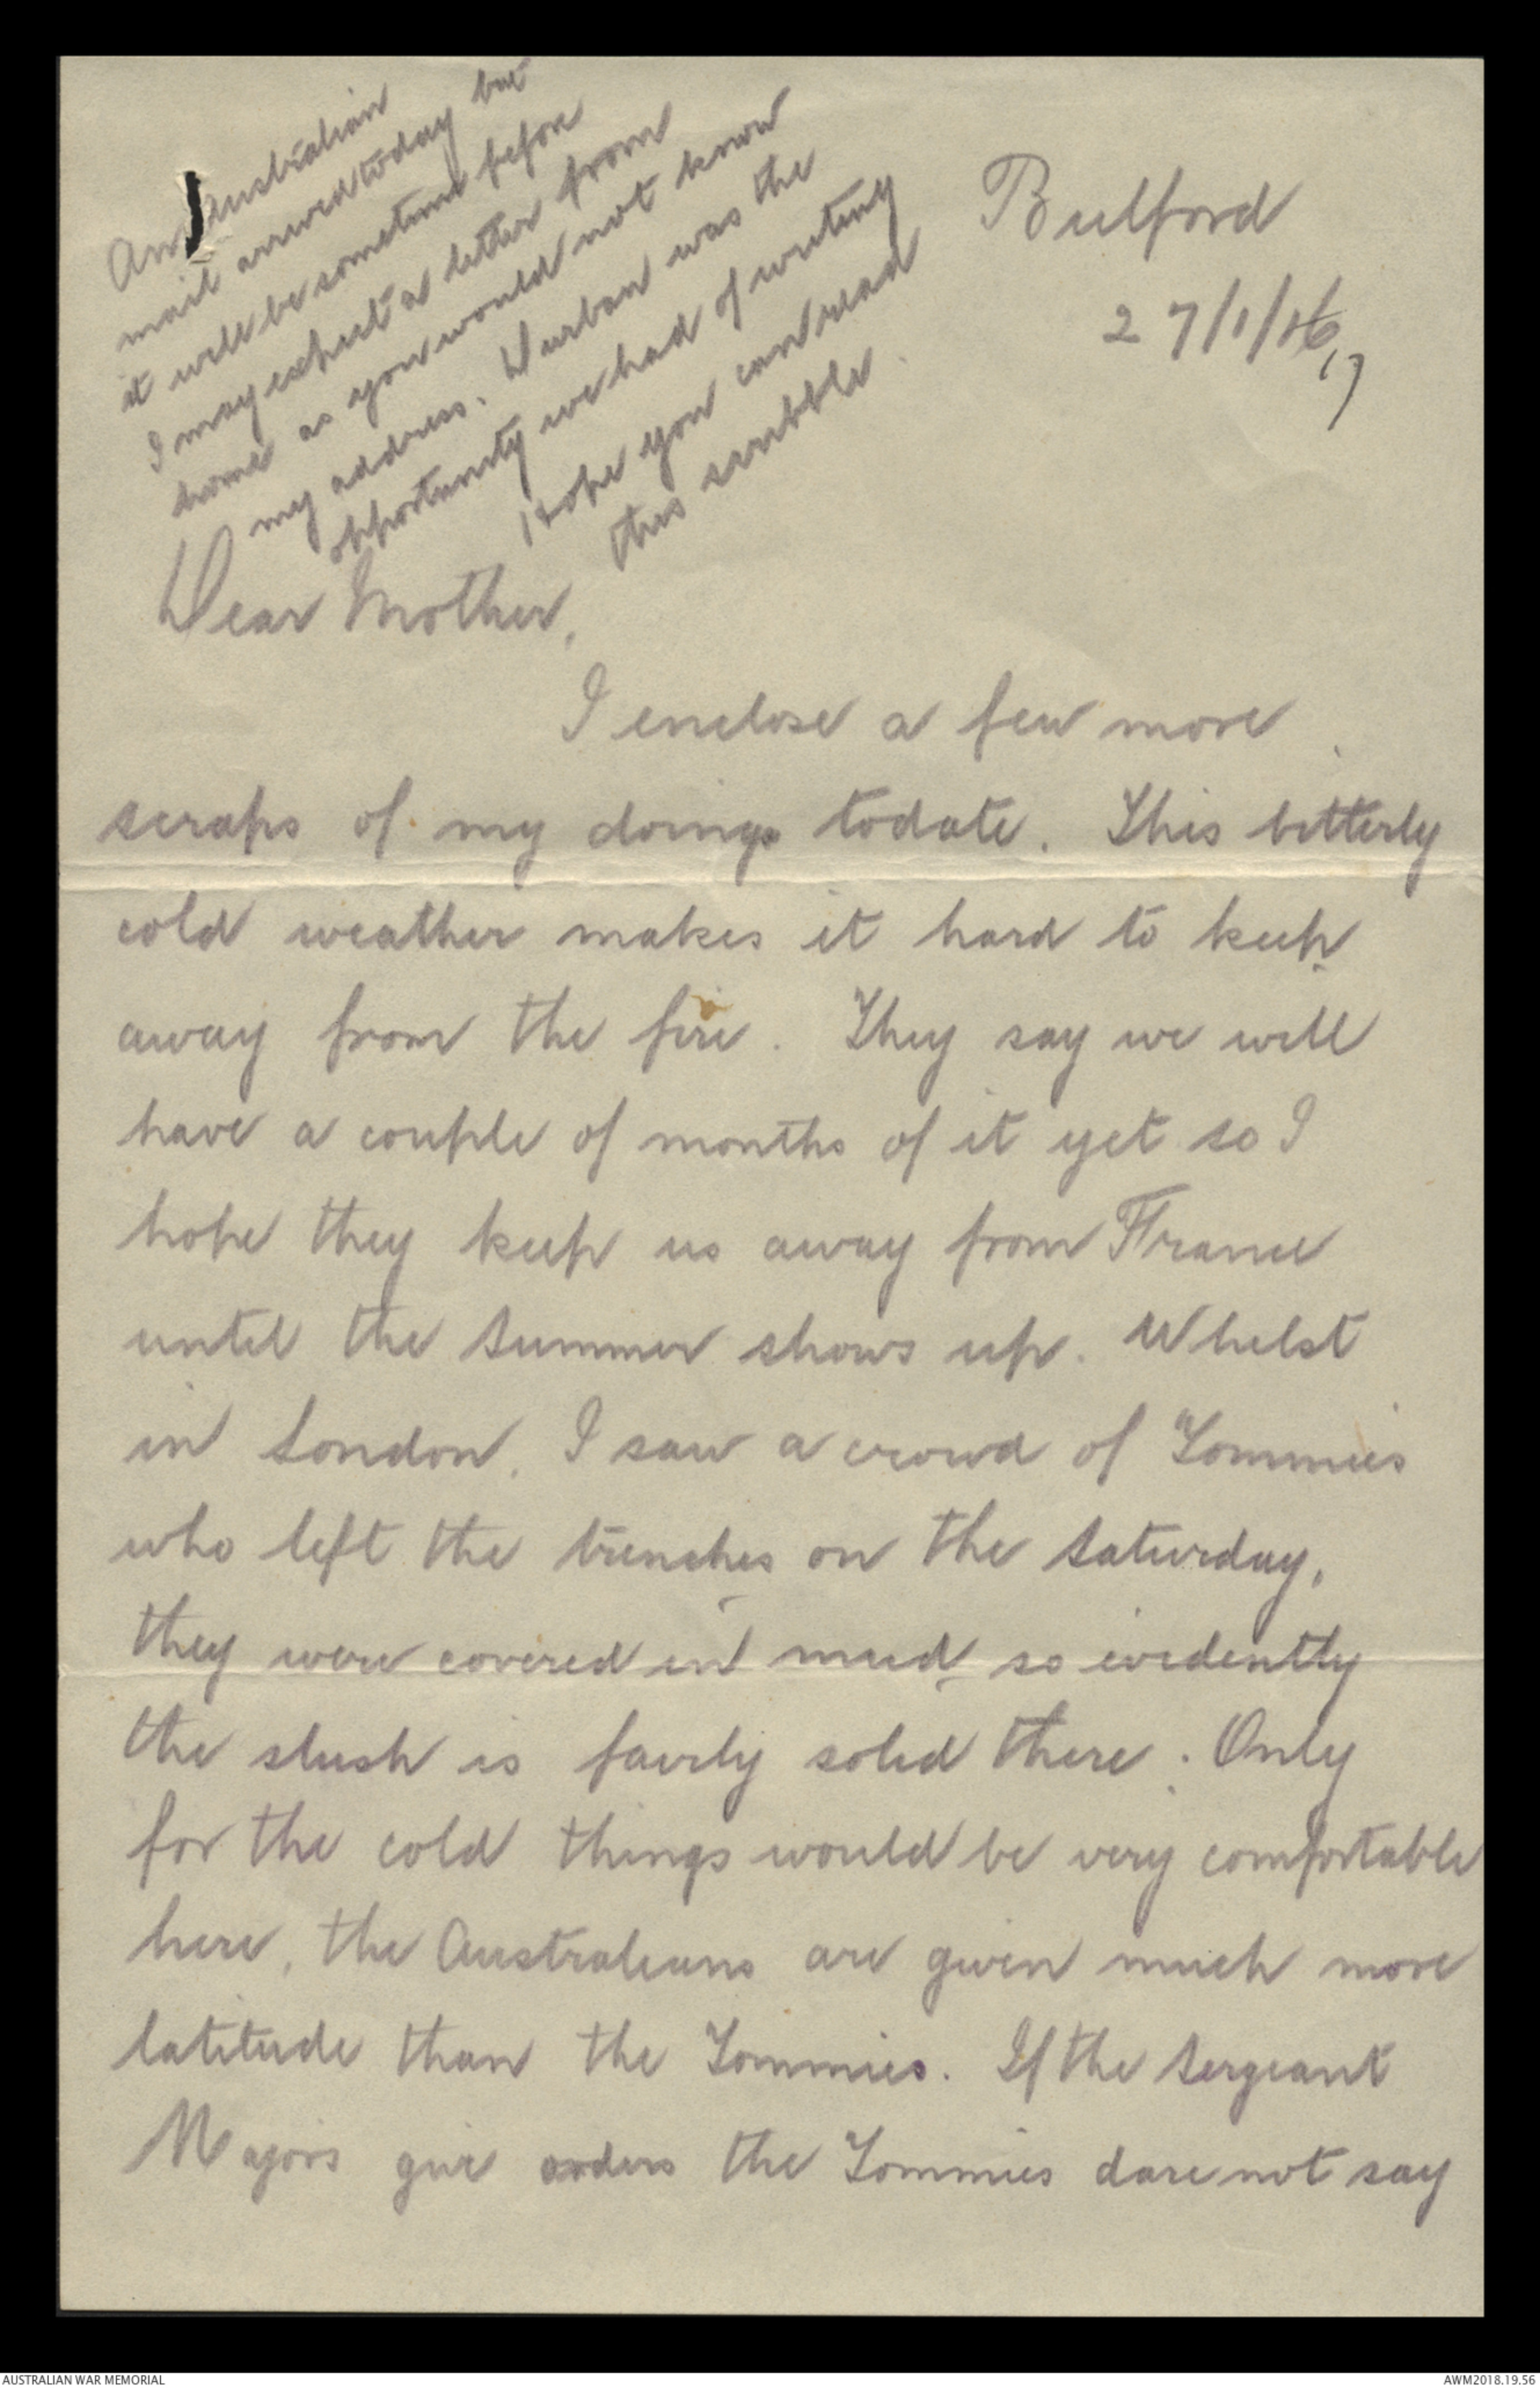 An Australian
mail arrived today but
it will be sometime before
I may expect a letter from
home as you would not know
my address. Durban was the
opportunity we had of writing
I hope you can read
this scribble.
Bulford
27/1/16
17
Dear Mother,
I enclose a few more
scraps of my doings todate. This bitterly
cold weather makes it hard to keep
away from the fire. They say we will
have a couple of months of it yet so I
hope they keep us away from France
until the summer shows up. Whilst
in London, I saw a crowd of Tommies
who left the trenches on the Saturday,
they were covered in mud, so evidently
the slush is fairly solid there. Only
for the cold things would be very comfortable
here, the Australians are given much more
latitude than the Tommies. If the Sergeant
Majors give orders the Tommies dare not say
AUSTRALIAN WAR MEMORIAL
AWM2018.19.56